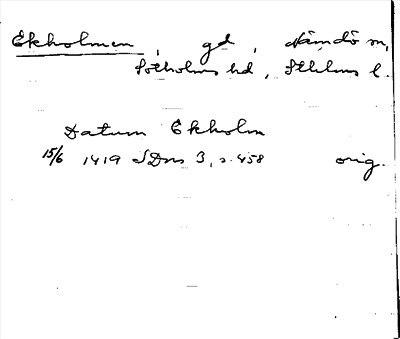 Ekholmen, gd, Nämdö sn,
Sotholms hd, Sthlms l.
Datum Ekholm
15/6 1419 SDns 3, s. 458 orig.